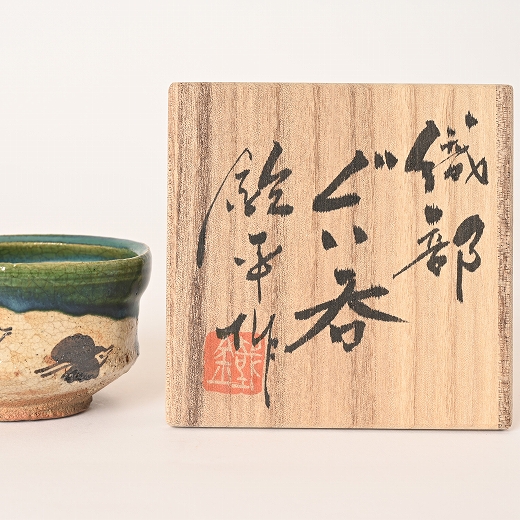 織部
ぐい呑
平作